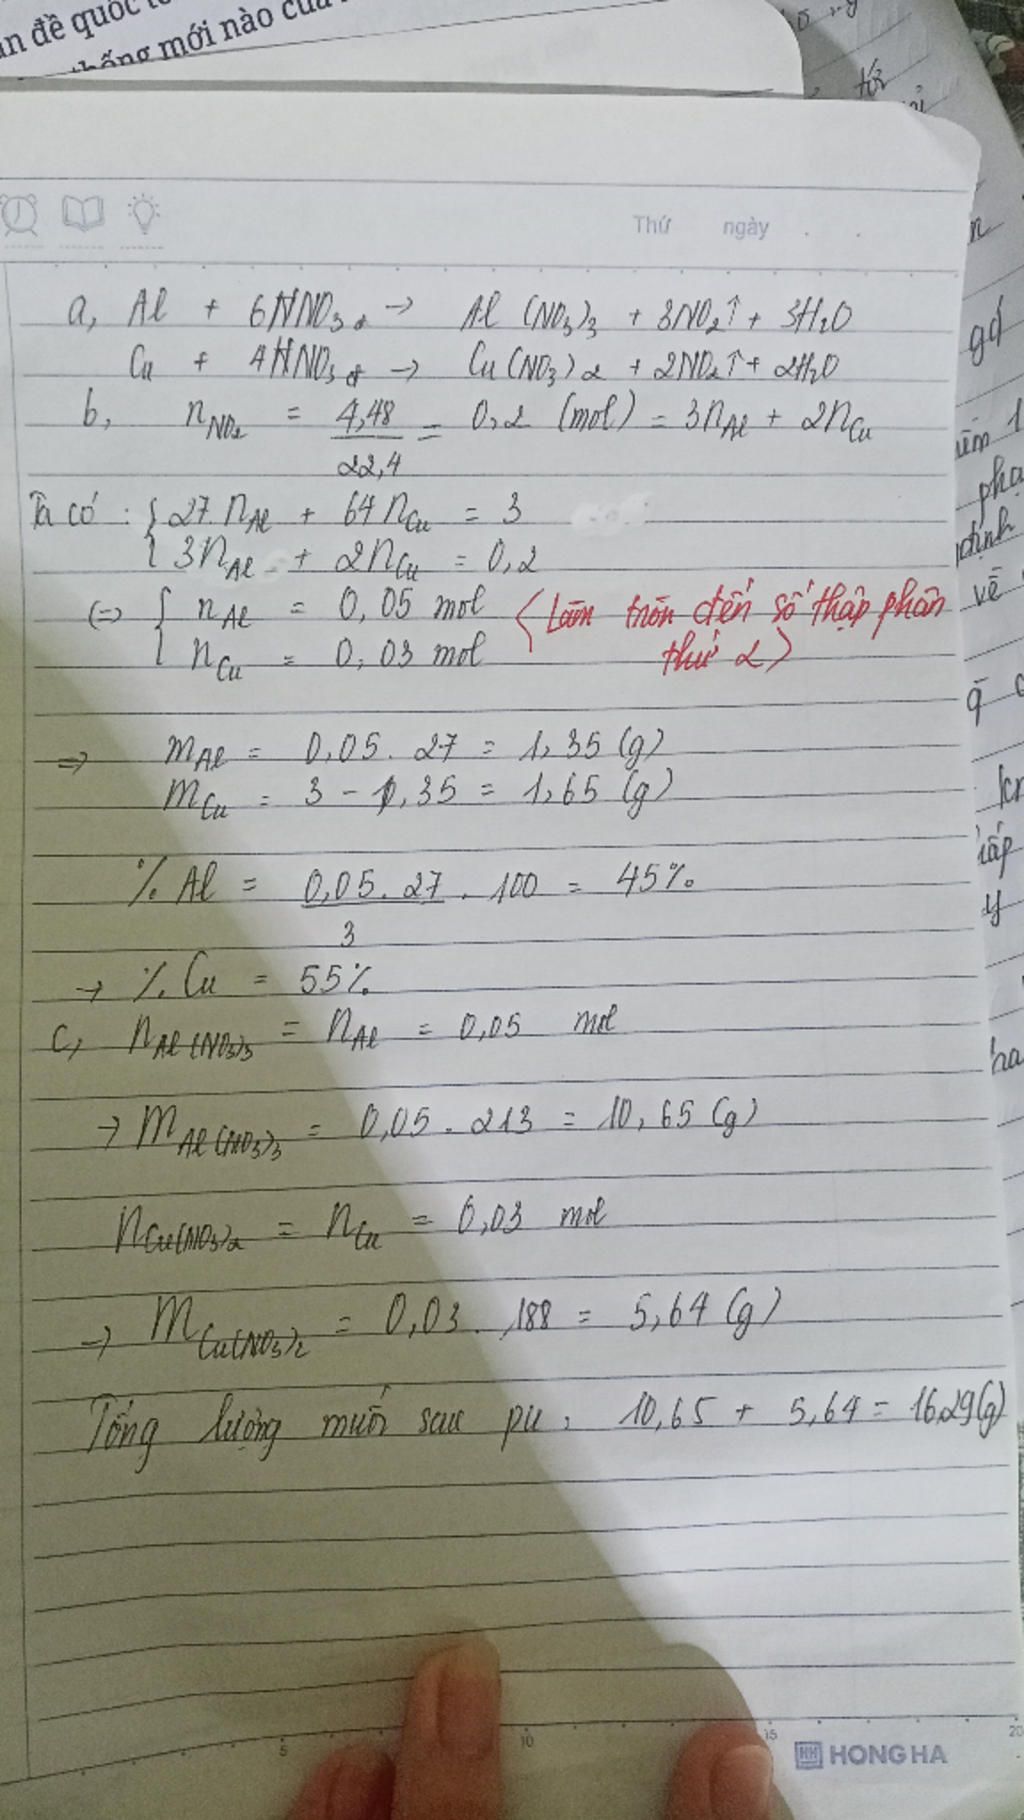 ần đề quốc tế
thống mới nào của
Thứ ngày . .
a, Al + 6HNO3đ → Al(NO3)3 + 3NO2↑ + 3H2O
Cu + 4HNO3đ → Cu(NO3)2 + 2NO2↑ + 2H2O
b, nNO2 = 4,48/22,4 = 0,2 (mol) = 3nAl + 2nCu
Ta có : { 27.nAl + 64nCu = 3
{ 3nAl + 2nCu = 0,2
(=) { nAl = 0,05 mol (Làm tròn đến số thập phân
{ nCu = 0,03 mol thứ 2)
=> mAl = 0,05 . 27 = 1,35 (g)
mCu = 3 - 1,35 = 1,65 (g)
% Al = 0,05.27/3 . 100 = 45%
→ % Cu = 55%
c, nAl(NO3)3 = nAl = 0,05 mol
→ mAl(NO3)3 = 0,05 . 213 = 10,65 (g)
nCu(NO3)2 = nCu = 0,03 mol
→ mCu(NO3)2 = 0,03 . 188 = 5,64 (g)
Tổng lượng muối sau pu : 10,65 + 5,64 = 16,29(g)
tới
gđ
1
pha
định
về
q
cấp
y
5 10 15 20
HH HONG HA